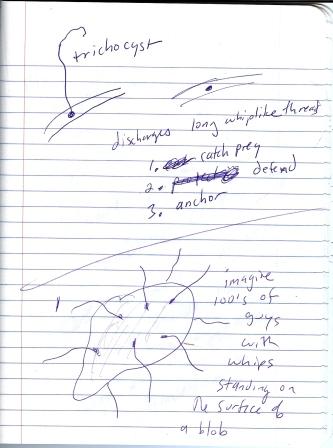 trichocyst
discharges long whiplike threat
1. catch prey
2. defend
3. anchor
imagine
100's of
guys
with
whips
standing on
the surface of
a blob